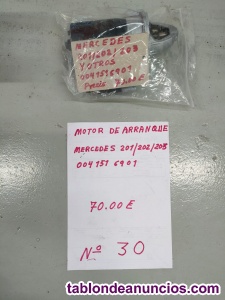 MERCEDES
201/202/203
Y OTROS
0041516901
Precio 70.00 €
MOTOR DE ARRANQUE
MERCEDES 201/202/203
004 151 6901
70.00 €
Nº 30
tablondeanuncios.com